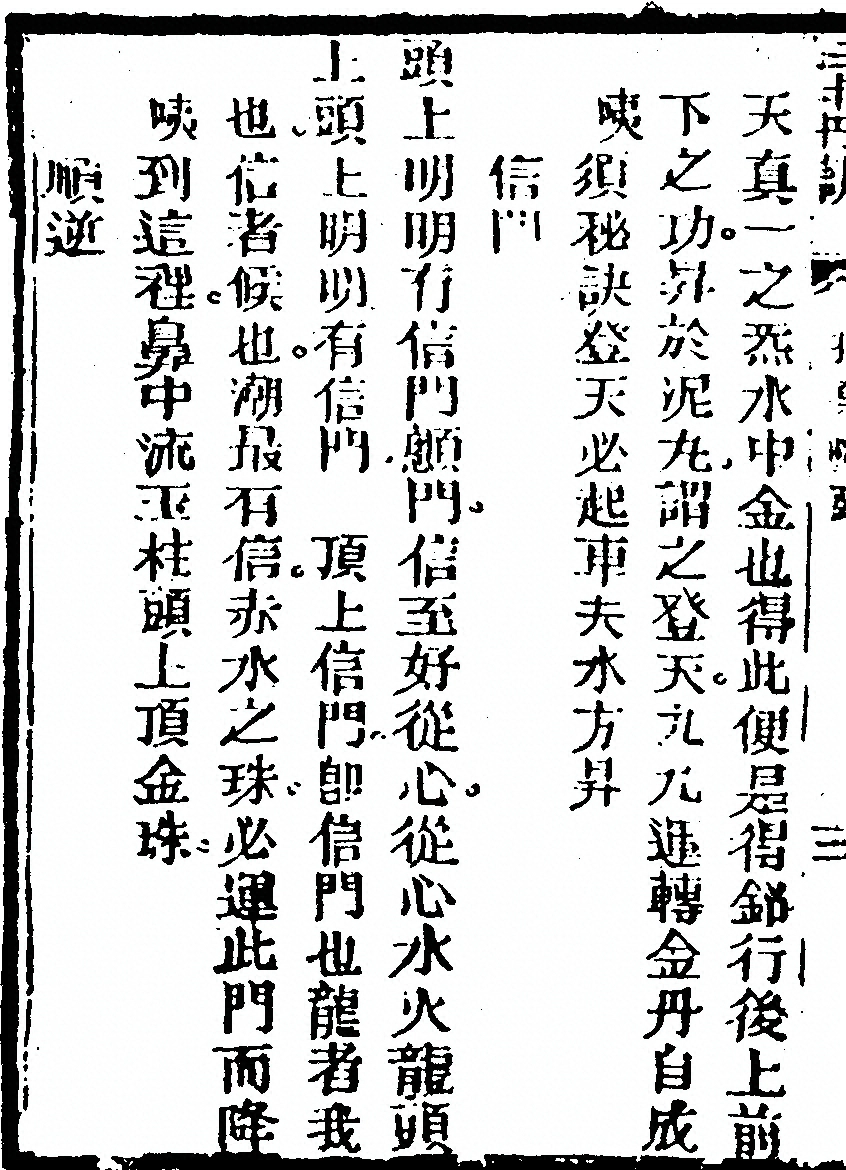 天真一之炁水中金也得此便是得鉛行後上前
下之功。昇於泥丸謂之登天。九九運轉金丹自成
咦須秘訣登天必起車夫水方昇
信門
頭上明明有信門顖門。信至好從心。從心水火龍頭
上頭上明明有信門　頂上信門即信門也龍者我
也信者候也。潮最有信。赤水之珠必運此門而降
咦到這裡。鼻中流玉柱頭上頂金珠
順逆